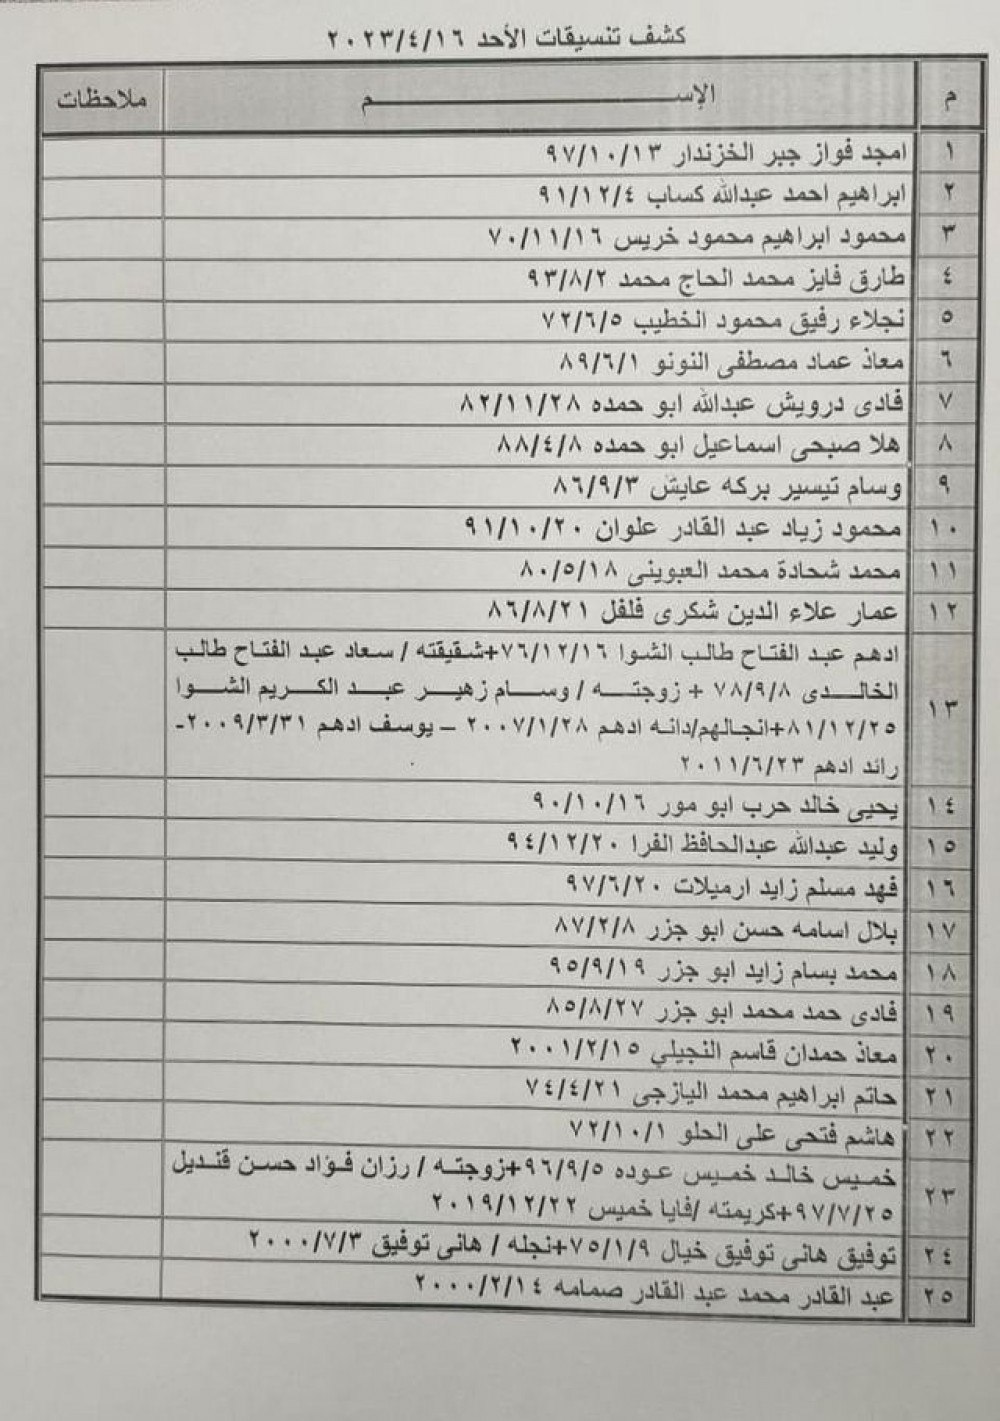 كشف تنسيقات الأحد ٢٠٢٣/٤/١٦
م الإســـــم ملاحظات
١ امجد فواز جبر الخزندار ٩٧/١٠/١٣
٢ ابراهيم احمد عبدالله كساب ٩١/١٢/٤
٣ محمود ابراهيم محمود خريس ٧٠/١١/١٦
٤ طارق فايز محمد الحاج محمد ٩٣/٨/٢
٥ نجلاء رفيق محمود الخطيب ٧٢/٦/٥
٦ معاذ عماد مصطفى النونو ٨٩/٦/١
٧ فادى درويش عبدالله ابو حمده ٨٢/١١/٢٨
٨ هلا صبحى اسماعيل ابو حمده ٨٨/٤/٨
٩ وسام تيسير بركه عايش ٨٦/٩/٣
١٠ محمود زياد عبد القادر علوان ٩١/١٠/٢٠
١١ محمد شحادة محمد العبوينى ٨٠/٥/١٨
١٢ عمار علاء الدين شكرى فلفل ٨٦/٨/٢١
١٣ ادهم عبد الفتاح طالب الشوا ٧٦/١٢/١٦+شقيقته / سعاد عبد الفتاح طالب
الخالدى ٧٨/٩/٨ + زوجته / وسام زهير عبد الكريم الشوا
٨١/١٢/٢٥+انجالهم/دانه ادهم ٢٠٠٧/١/٢٨ – يوسف ادهم ٢٠٠٩/٣/٣١-
رائد ادهم ٢٠١١/٦/٢٣
١٤ يحيى خالد حرب ابو مور ٩٠/١٠/١٦
١٥ وليد عبدالله عبدالحافظ الفرا ٩٤/١٢/٢٠
١٦ فهد مسلم زايد ارميلات ٩٧/٦/٢٠
١٧ بلال اسامه حسن ابو جزر ٨٧/٢/٨
١٨ محمد بسام زايد ابو جزر ٩٥/٩/١٩
١٩ فادى حمد محمد ابو جزر ٨٥/٨/٢٧
٢٠ معاذ حمدان قاسم النجيلي ٢٠٠١/٢/١٥
٢١ حاتم ابراهيم محمد اليازجى ٧٤/٤/٢١
٢٢ هاشم فتحى على الحلو ٧٢/١٠/١
٢٣ خميس خالد خميس عوده ٩٦/٩/٥+زوجته / رزان فؤاد حسن قنديل
٩٧/٧/٢٥+كريمته /فايا خميس ٢٠١٩/١٢/٢٢
٢٤ توفيق هانى توفيق خيال ٧٥/١/٩+نجله / هانى توفيق ٢٠٠٠/٧/٣
٢٥ عبد القادر محمد عبد القادر صمامه ٢٠٠٠/٢/١٤